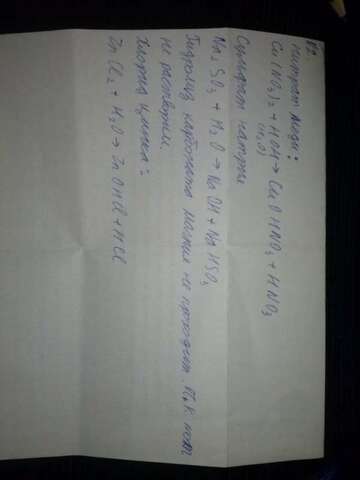 №2.
Нитрат меди:
Cu(NO3)2 + HOH → CuOHNO3 + HNO3
(H2O)
Сульфит натрия
Na2SO3 + H2O → NaOH + NaHSO3
Гидролиз карбоната магния не проходит, т.к. он
не растворим.
Хлорид цинка:
ZnCl2 + H2O → ZnOHCl + HCl